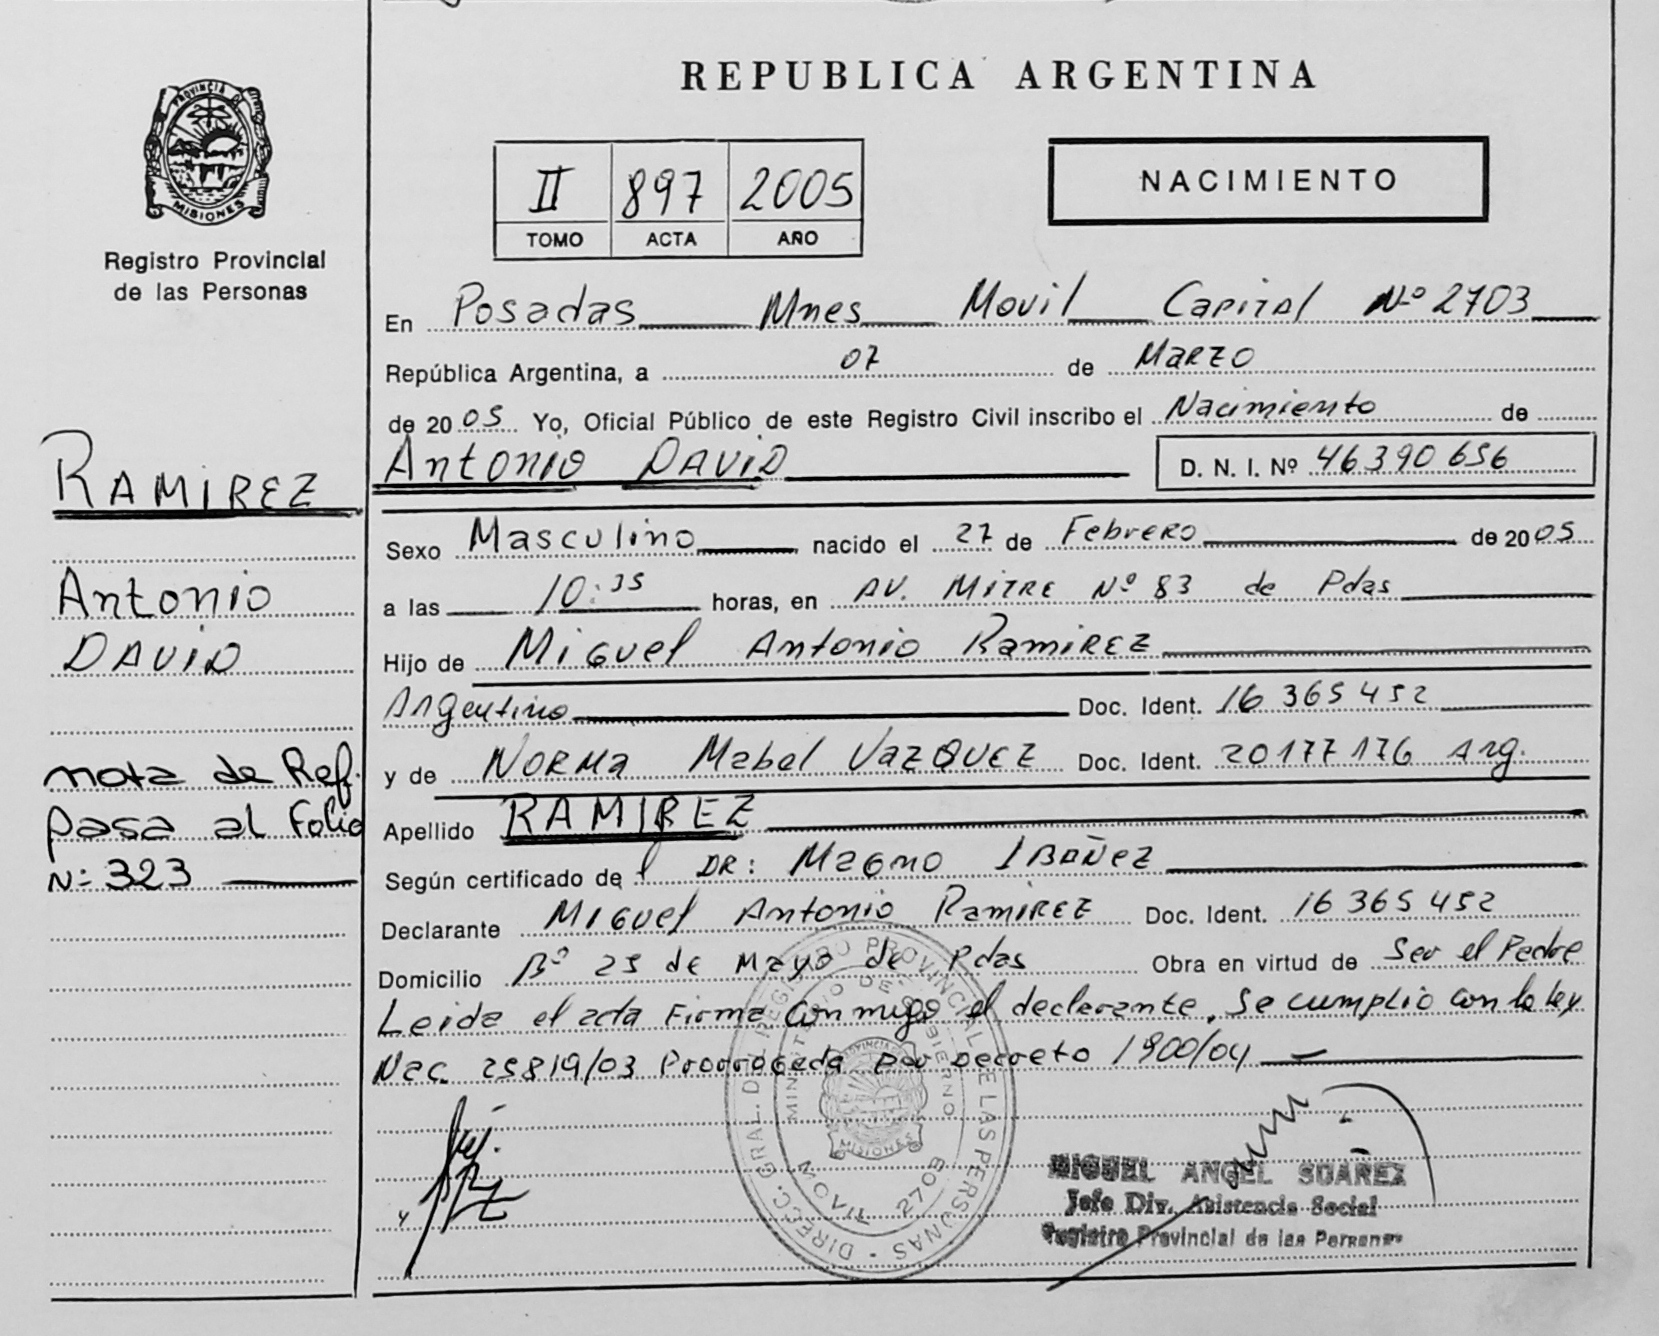 PROVINCIA D
MISIONES
Registro Provincial
de las Personas
RAMIREZ
Antonio
DAVID
nota de Ref.
pasa al Folio
Nº 323
REPUBLICA ARGENTINA
II 897 2005
TOMO ACTA AÑO
NACIMIENTO
En Posadas Mnes Movil Capital Nº 2703
República Argentina, a 07 de Marzo
de 2005 Yo, Oficial Público de este Registro Civil inscribo el Nacimiento de
Antonio DAVID D. N. I. Nº 46390656
Sexo Masculino nacido el 27 de Febrero de 2005
a las 10:35 horas, en AV. MITRE Nº 83 de Pdas
Hijo de Miguel Antonio Ramirez
Argentino Doc. Ident. 16 365 452
y de NORMA Mabel VAZQUEZ Doc. Ident. 20177176 Arg.
Apellido RAMIREZ
Según certificado de DR: Magno IBAÑEZ
Declarante Miguel Antonio Ramirez Doc. Ident. 16 365 452
Domicilio Bº 25 de Mayo de Pdas Obra en virtud de Ser el Padre
Leida el acta Firma conmigo el declarante. Se cumplio con la ley
Nac. 25819/03 Prorrogada por Decreto 1900/04
DIREC. GRAL. DEL REGISTRO PROVINCIAL DE LAS PERSONAS
MINISTERIO DE GOBIERNO
PROVINCIA
MISIONES
MOVIL 2703
MIGUEL ANGEL SUAREZ
Jefe Div. Asistencia Social
Registro Provincial de las Personas